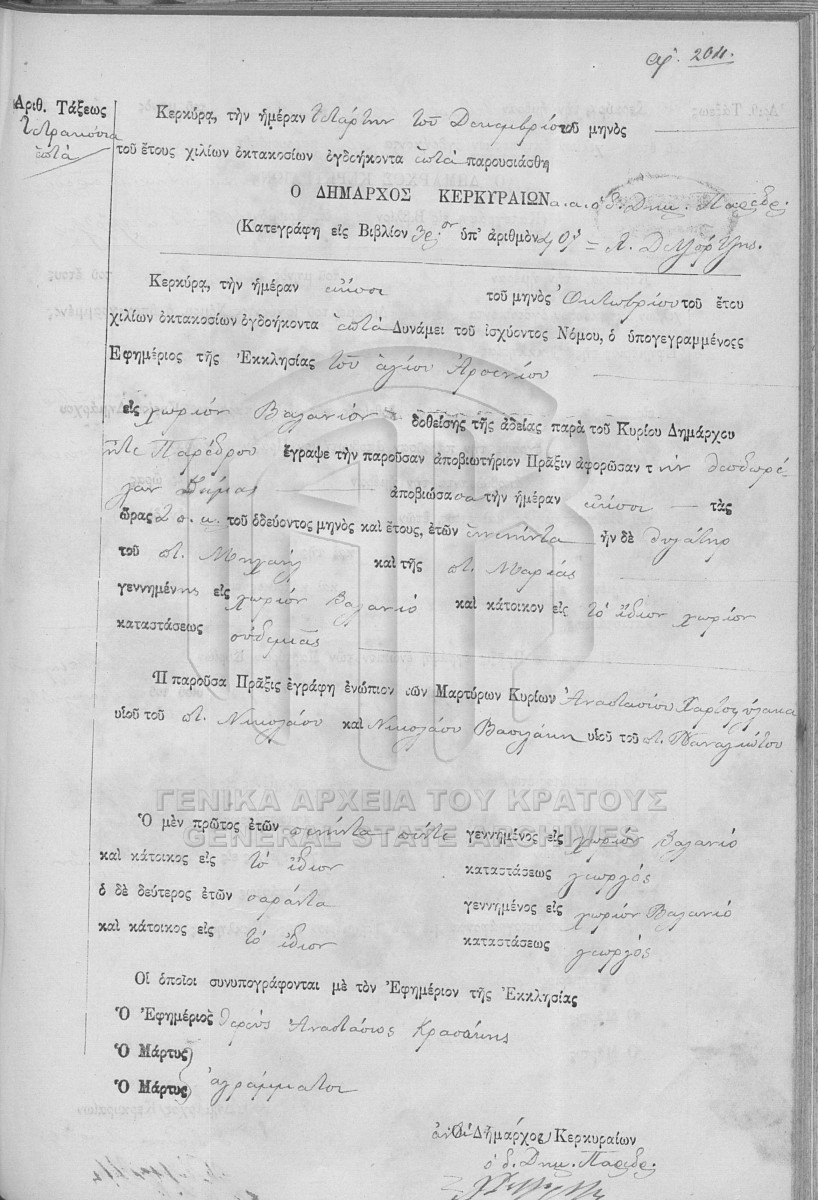 ἀρ. 204.
Ἀριθ. Τάξεως
τετρακόσια
ἑπτά
Κερκύρᾳ, τὴν ἡμέραν τετάρτην τοῦ Δεκεμβρίου τοῦ μηνὸς
τοῦ ἔτους χιλίων ὀκτακοσίων ὀγδοήκοντα ἑπτὰ παρουσιάσθη
Ὁ ΔΗΜΑΡΧΟΣ ΚΕΡΚΥΡΑΙΩΝ α.α. ὁ δ. Δημ. Πάρεδρ.
(Κατεγράφη εἰς Βιβλίον 3ον ὑπ' ἀριθμὸν 407
Κερκύρᾳ, τὴν ἡμέραν εἴκοσι τοῦ μηνὸς Ὀκτωβρίου τοῦ ἔτου
χιλίων ὀκτακοσίων ὀγδοήκοντα ἑπτὰ Δυνάμει τοῦ ἰσχύοντος Νόμου, ὁ ὑπογεγραμμένοςς
Ἐφημέριος τῆς Ἐκκλησίας τοῦ ἁγίου Ἀρσενίου
εἰς χωρίον Βαλανιόν δοθείσης τῆς ἀδείας παρὰ τοῦ Κυρίου Δημάρχου
Παρέδρου ἔγραψε τὴν παροῦσαν ἀποβιωτήριον Πρᾶξιν ἀφορῶσαν τ ὴν Θεοδωρέ-
λαν ἀποβιώσασα τὴν ἡμέραν εἴκοσι τὰς
ὥρας 2 π. μ. τοῦ ὁδεύοντος μηνὸς καὶ ἔτους, ἐτῶν ἐνενήντα ἦν δὲ θυγάτηρ
τοῦ ποτ. Μιχαήλ καὶ τῆς ποτ. Μαρίας
γεννημένης εἰς χωρίον Βαλανιό καὶ κάτοικον εἰς τὸ ἴδιον χωρίον
καταστάσεως οὐδεμιᾶς
Ἡ παροῦσα Πρᾶξις ἐγράφη ἐνώπιον τῶν Μαρτύρων Κυρίων Ἀναστασίου Χαρτοφύλακα
υἱοῦ τοῦ ποτ. Νικολάου καὶ Νικολάου Βασιλάκη υἱοῦ τοῦ ποτ. Παναγιώτου
ΓΕΝΙΚΑ ΑΡΧΕΙΑ ΤΟΥ ΚΡΑΤΟΥΣ
GENERAL STATE ARCHIVES
Ὁ μὲν πρῶτος ἐτῶν πενήντα πέντε γεννημένος εἰς χωρίον Βαλανιό
καὶ κάτοικος εἰς τὸ ἴδιον καταστάσεως γεωργός
ὁ δὲ δεύτερος ἐτῶν σαράντα γεννημένος εἰς χωρίον Βαλανιό
καὶ κάτοικος εἰς τὸ ἴδιον καταστάσεως γεωργός
Οἱ ὁποῖοι συνυπογράφονται μὲ τὸν Ἐφημέριον τῆς Ἐκκλησίας
Ὁ Ἐφημέριος Ἱερεὺς Ἀναστάσιος Κρασάκης
Ὁ Μάρτυς
Ὁ Μάρτυς ἀγράμματοι
Ὁ Δήμαρχος Κερκυραίων
ὁ δ. Δημ. Πάρεδρ.